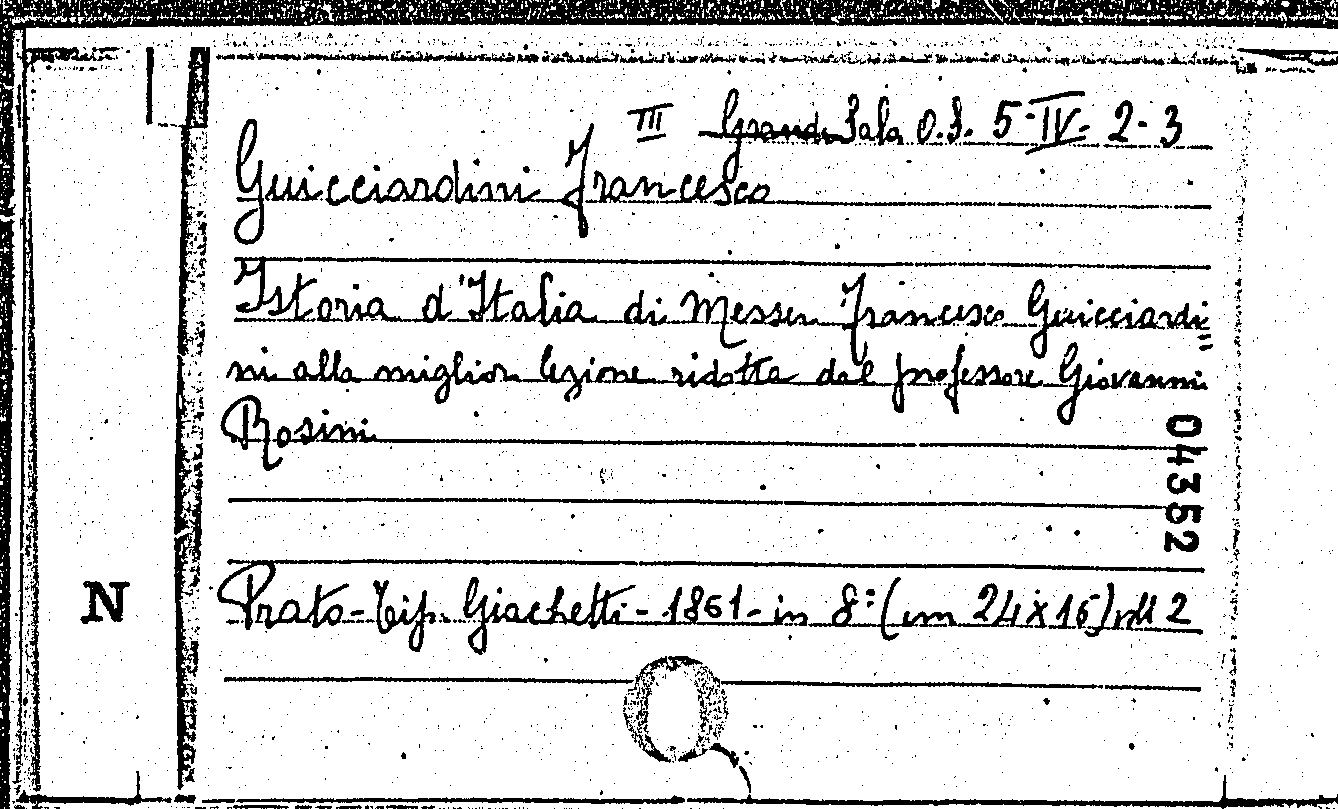 III Grande Sala O.S. 5-IV- 2-3
Guicciardini Francesco
Istoria d'Italia di Messer Francesco Guicciardi"
ni alla miglior lezione ridotta dal professore Giovanni
Rosini
04352
N
Prato-Tip. Giachetti-1861-in 8:(cm 24x16)voll 2